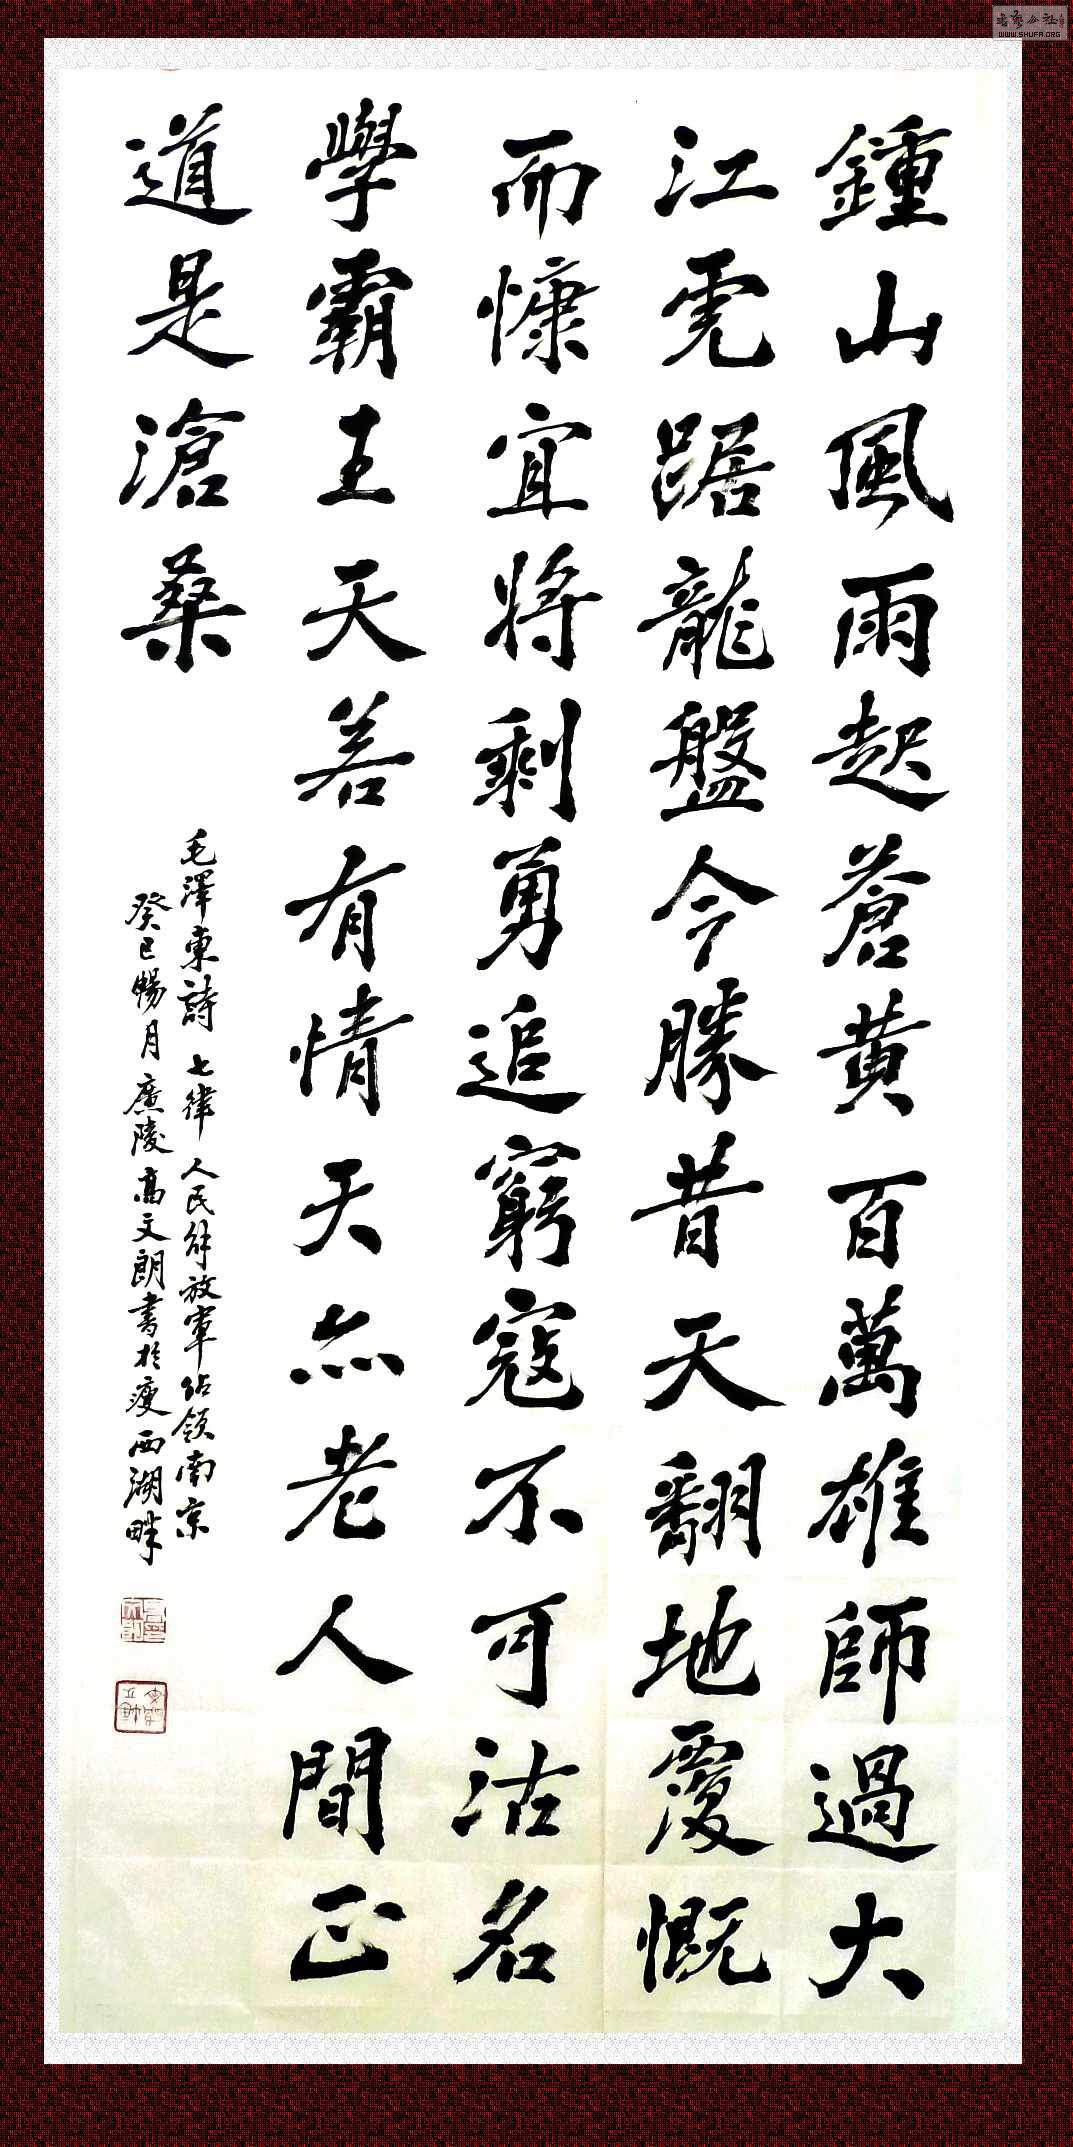 鍾山風雨起蒼黄百萬雄師過大
江虎踞龍盤今勝昔天翻地覆慨
而慷宜將剩勇追窮寇不可沽名
學霸王天若有情天亦老人間正
道是滄桑
毛澤東詩 七律 人民解放軍佔領南京
癸巳暢月廣陵高文朗書於瘦西湖畔
WWW.SHUFA.ORG